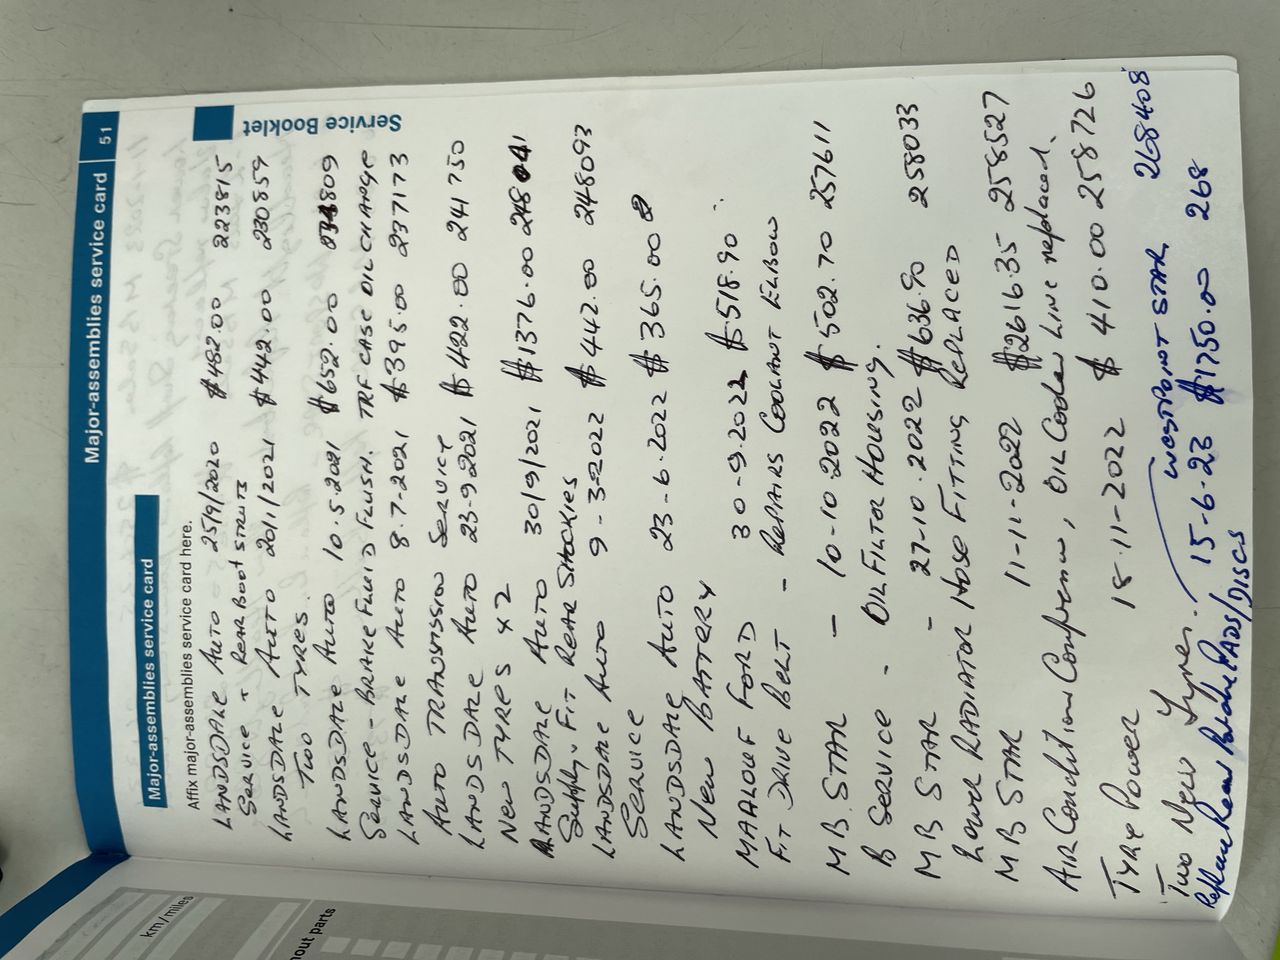 Major-assemblies service card 51
Service Booklet
Major-assemblies service card
Affix major-assemblies service card here.
LANDSDALE AUTO 25/9/2020 $482.00 223815
SERVICE + REAR BOOT STRUTS
LANDSDALE AUTO 20/1/2021 $442.00 230859
TWO TYRES.
LANDSDALE AUTO 10.5.2021 $652.00 809
SERVICE - BRAKE FLUID FLUSH. TRF CASE OIL CHANGE
LANDSDALE AUTO 8.7-2021 $395.00 237173
AUTO TRANSMISSION SERVICE
LANDSDALE AUTO 23-9-2021 $422.00 241750
NEW TYRES x 2
LANDSDALE AUTO 30/9/2021 $1376.00 248041
Supply & FIT REAR SHOCKIES
LANDSDALE AUTO 9-3-2022 $442.00 248093
SERVICE
LANDSDALE AUTO 23-6.2022 $365.00
NEW BATTERY
MAALOUF FORD 30-9.2022 $518.90
FIT DRIVE BELT - REPAIRS COOLANT ELBOW
M B. STAR - 10-10-2022 $502.70 257611
B SERVICE - OIL FILTOR HOUSING.
M B STAR - 27-10.2022 $636.90 258033
LOWER RADIATOR HOSE FITTING REPLACED
M B STAR 11-11-2022 $2616.35 258527
AIR Condition Compressor, OIL Cooler LINE replaced.
TYRE POWER 18.11-2022 $410.00 258726
Two New Tyres.
WESTPOINT STAR 268408
15-6-23 $1750.00 268
Replace Rear PADS/DISCS
km/miles
out parts